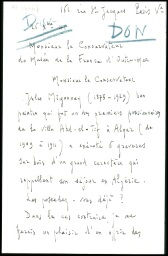 161 rue St Jacques Paris Ve
DON
Monsieur le Conservateur
du Musée de la France d'Outre-Mer
Monsieur le Conservateur
Jules Migonney (1876-1929) bon
peintre qui fut un des premiers pensionnaires
de la Villa Abd-el-Tif à Alger (de
1909 à 1911) a exécuté 6 gravures
sur bois d'un grand caractère qui
rappellent son séjour en Algérie.
Les possédez-vous déjà ?
Dans le cas contraire je me
ferais un plaisir d'en offrir des